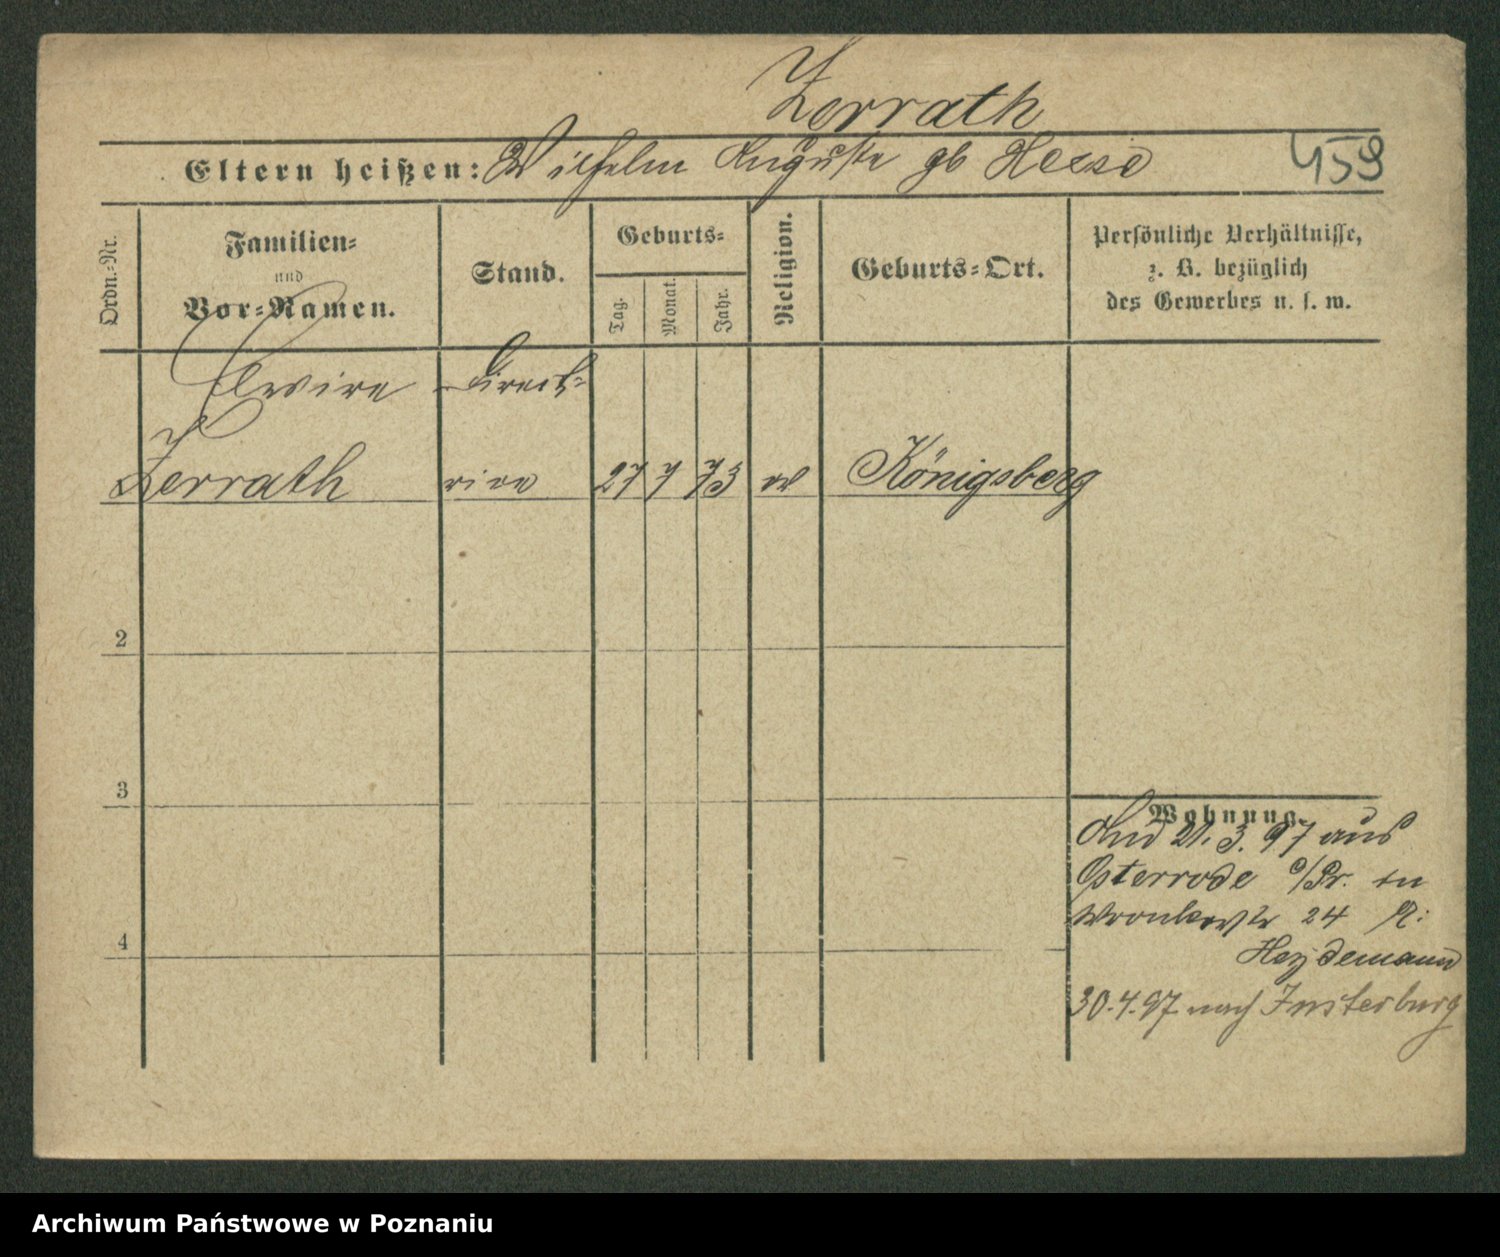 Zerrath
Eltern heißen: Wilhelm Auguste gb Hesse
459
Ordn.-Nr.
Familien-
und
Vor-Namen.
Stand.
Geburts-
Tag.
Monat.
Jahr.
Religion.
Geburts-Ort.
Persönliche Verhältnisse,
z. B. bezüglich
des Gewerbes u. s. w.
Elvire Direct-
Zerrath rice 27 7 73 ev Königsberg
2
3
4
Wohnung.
21. 3. 97 aus
Osterrode O/Pr. in
Wronkerstr 24
Heydemann
30.4.97 nach Insterburg
Archiwum Państwowe w Poznaniu